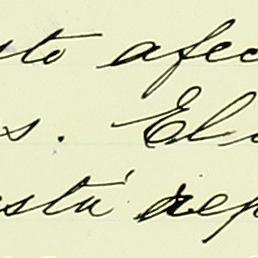 sto afec
s. El
está rep